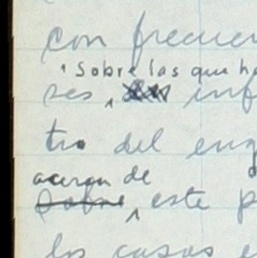 con frecuen
sobre las que ha
ses inf
tro del eng
acerca de
sobre este p
los casos e